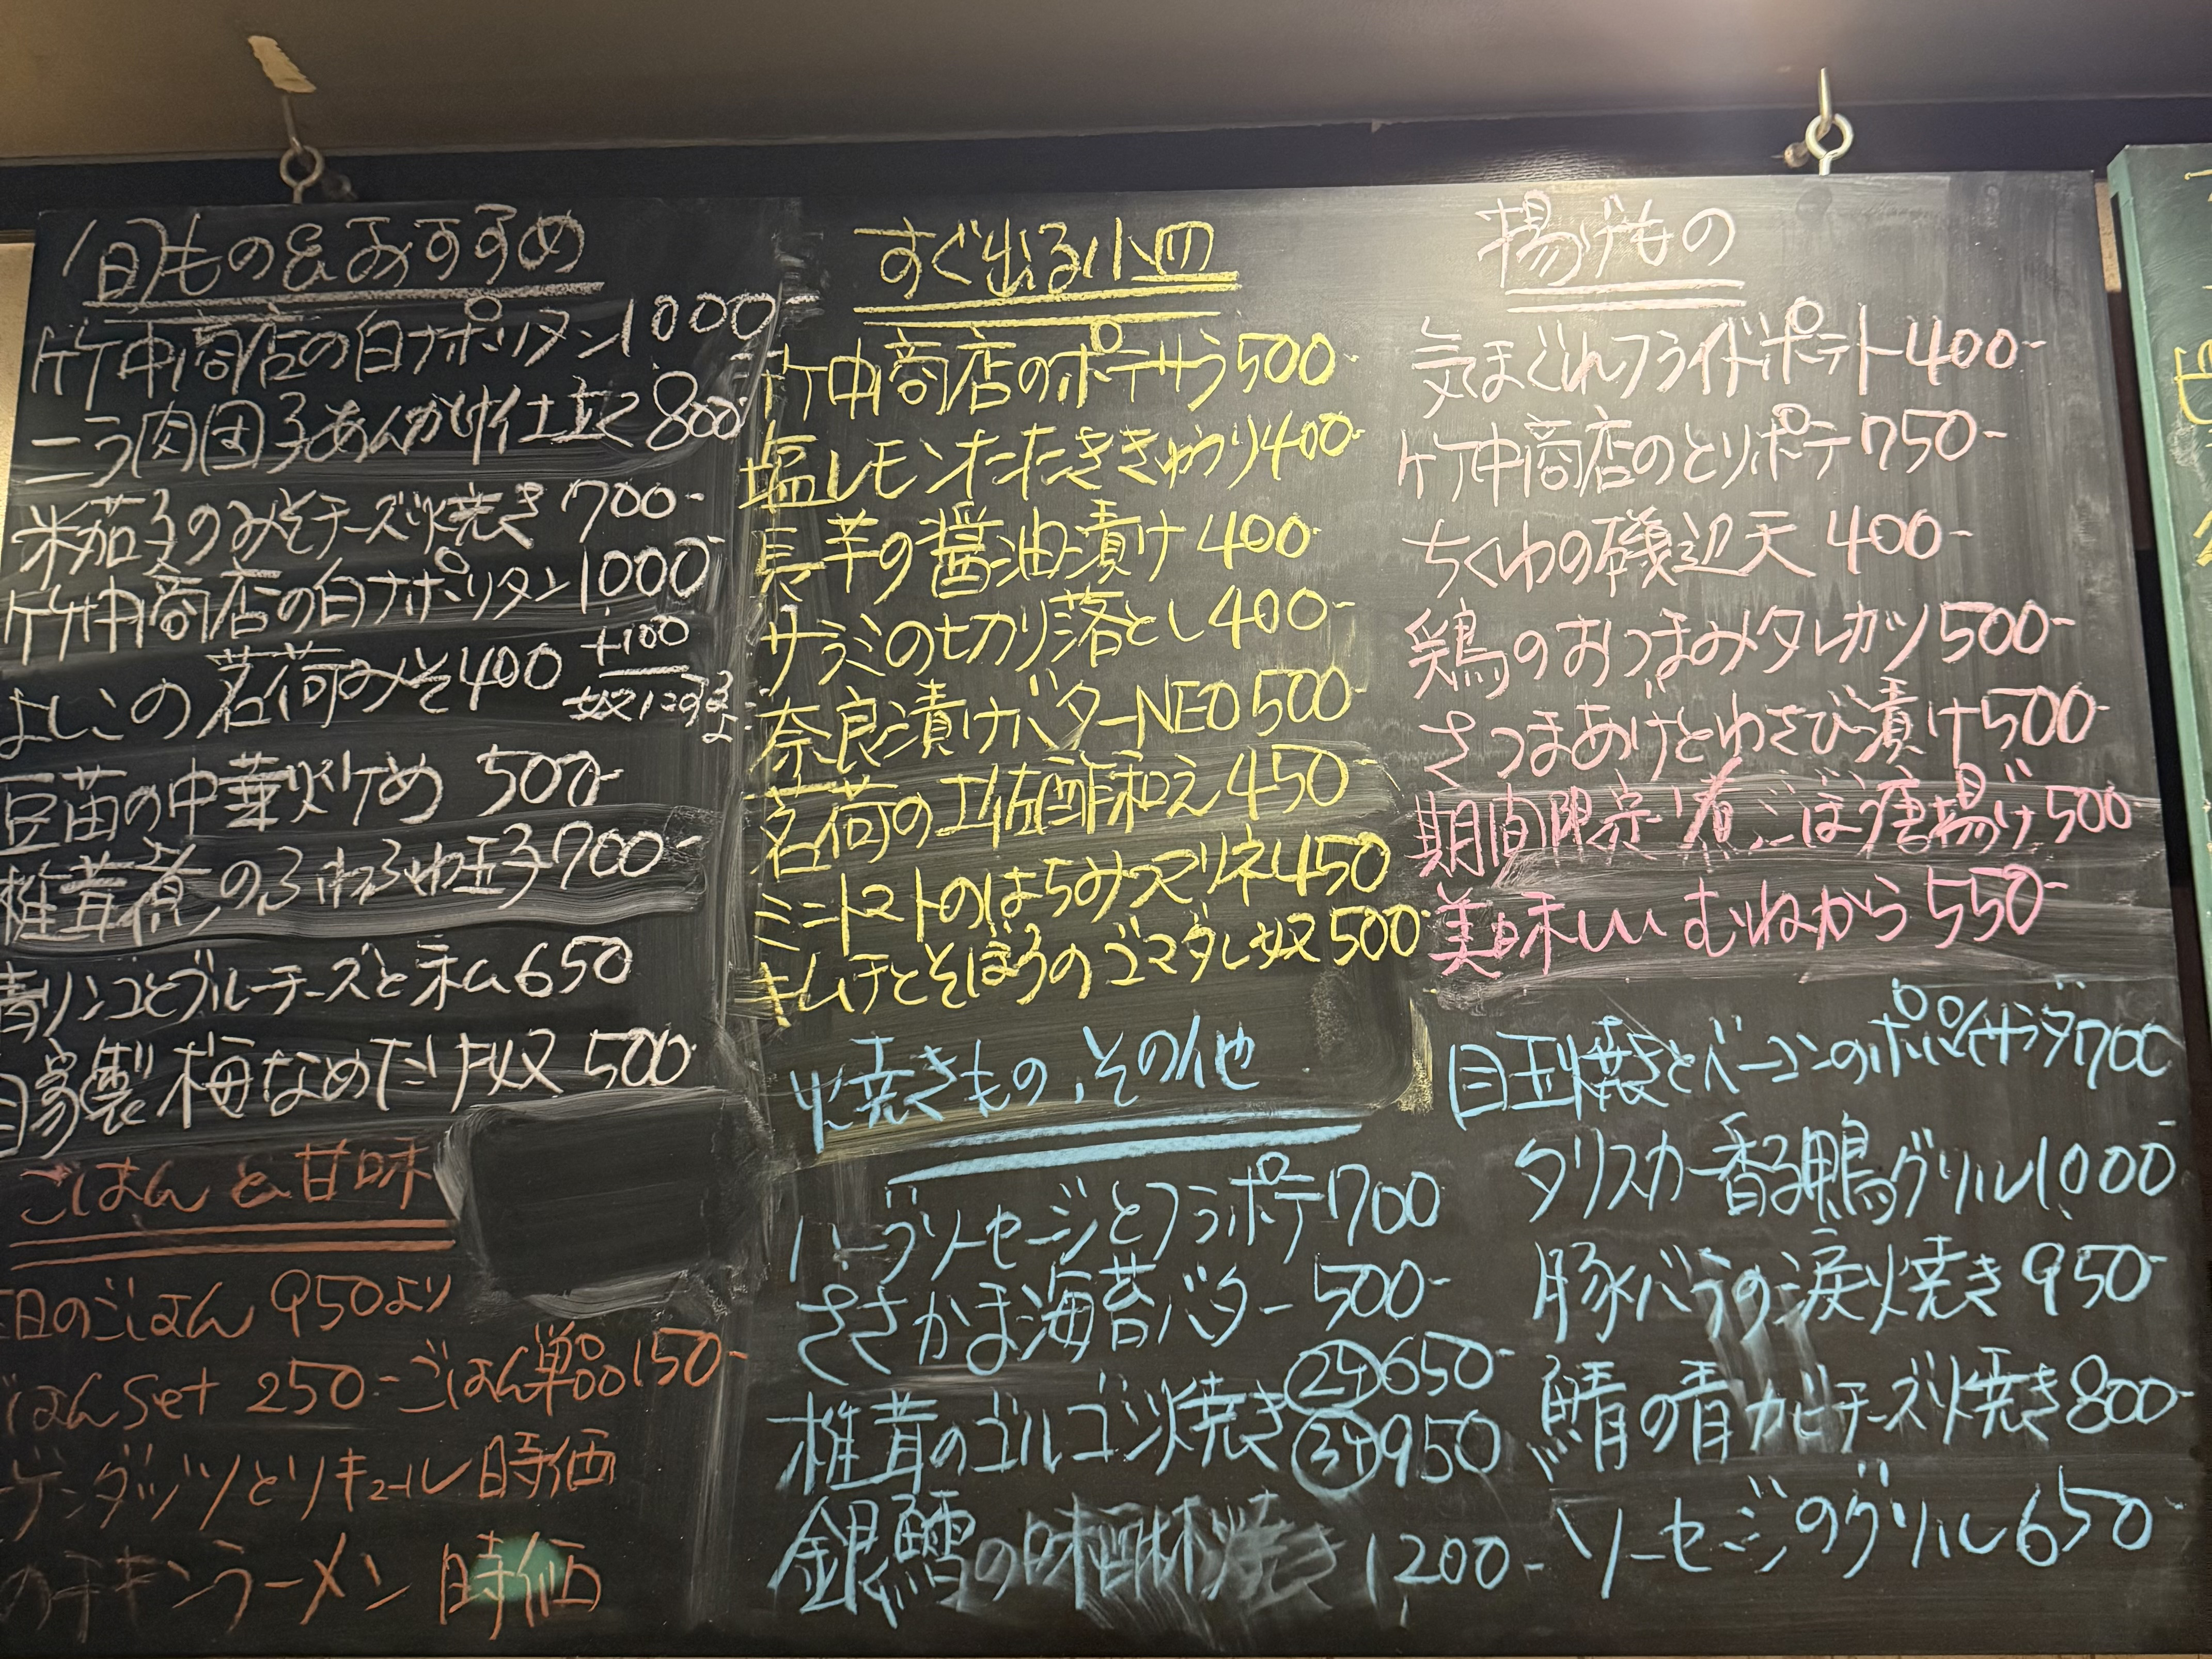 旬もの&おすすめ
竹中商店の白ナポリタン1000
ニラ肉団子あんかけ仕立て800-
米茄子のみそチーズ焼き 700-
竹中商店の白ナポリタン1000-
よしこの茗荷みそ400 +100 奴にするよ
豆苗の中華炒め 500-
椎茸煮のふわふわ玉子700-
青リンゴとブルーチーズと 650
自家製梅なめたけ奴 500-
ごはんと甘味
日のごはん 950より
ごはんSet 250-ごはん単品150-
ーゲンダッツとリキュール 時価
のチキンラーメン 時価
すぐ出る小皿
竹中商店のポテサラ500-
塩レモンたたききゅうり400-
長芋の醤油漬け 400-
サラミの切り落とし400-
奈良漬けバターNEO500-
茗荷の土佐酢和え450-
ミニトマトのはちみつマリネ450
キムチとそぼろのゴマダレ奴500-
焼きもの、その他
ハーブソーセージとフラポテ700-
ささかま海苔バター 500-
椎茸のゴルゴン焼き 2ケ650- 3ケ950
銀鱈の味醂焼き 1200-
揚げもの
気まぐれフライドポテト400-
竹中商店のとりポテ750-
ちくわの磯辺天 400-
鶏のおつまみタレカツ500-
さつまあげとわさび漬け500-
期間限定!煮ごぼう唐揚げ500-
美味しい むねから 550-
目玉焼きとベーコンのポパイサラダ700
タリスカー香る鴨グリル1000-
豚バラの涙焼き 950-
鯖の青カビチーズ焼き800-
ソーセージのグリル650-